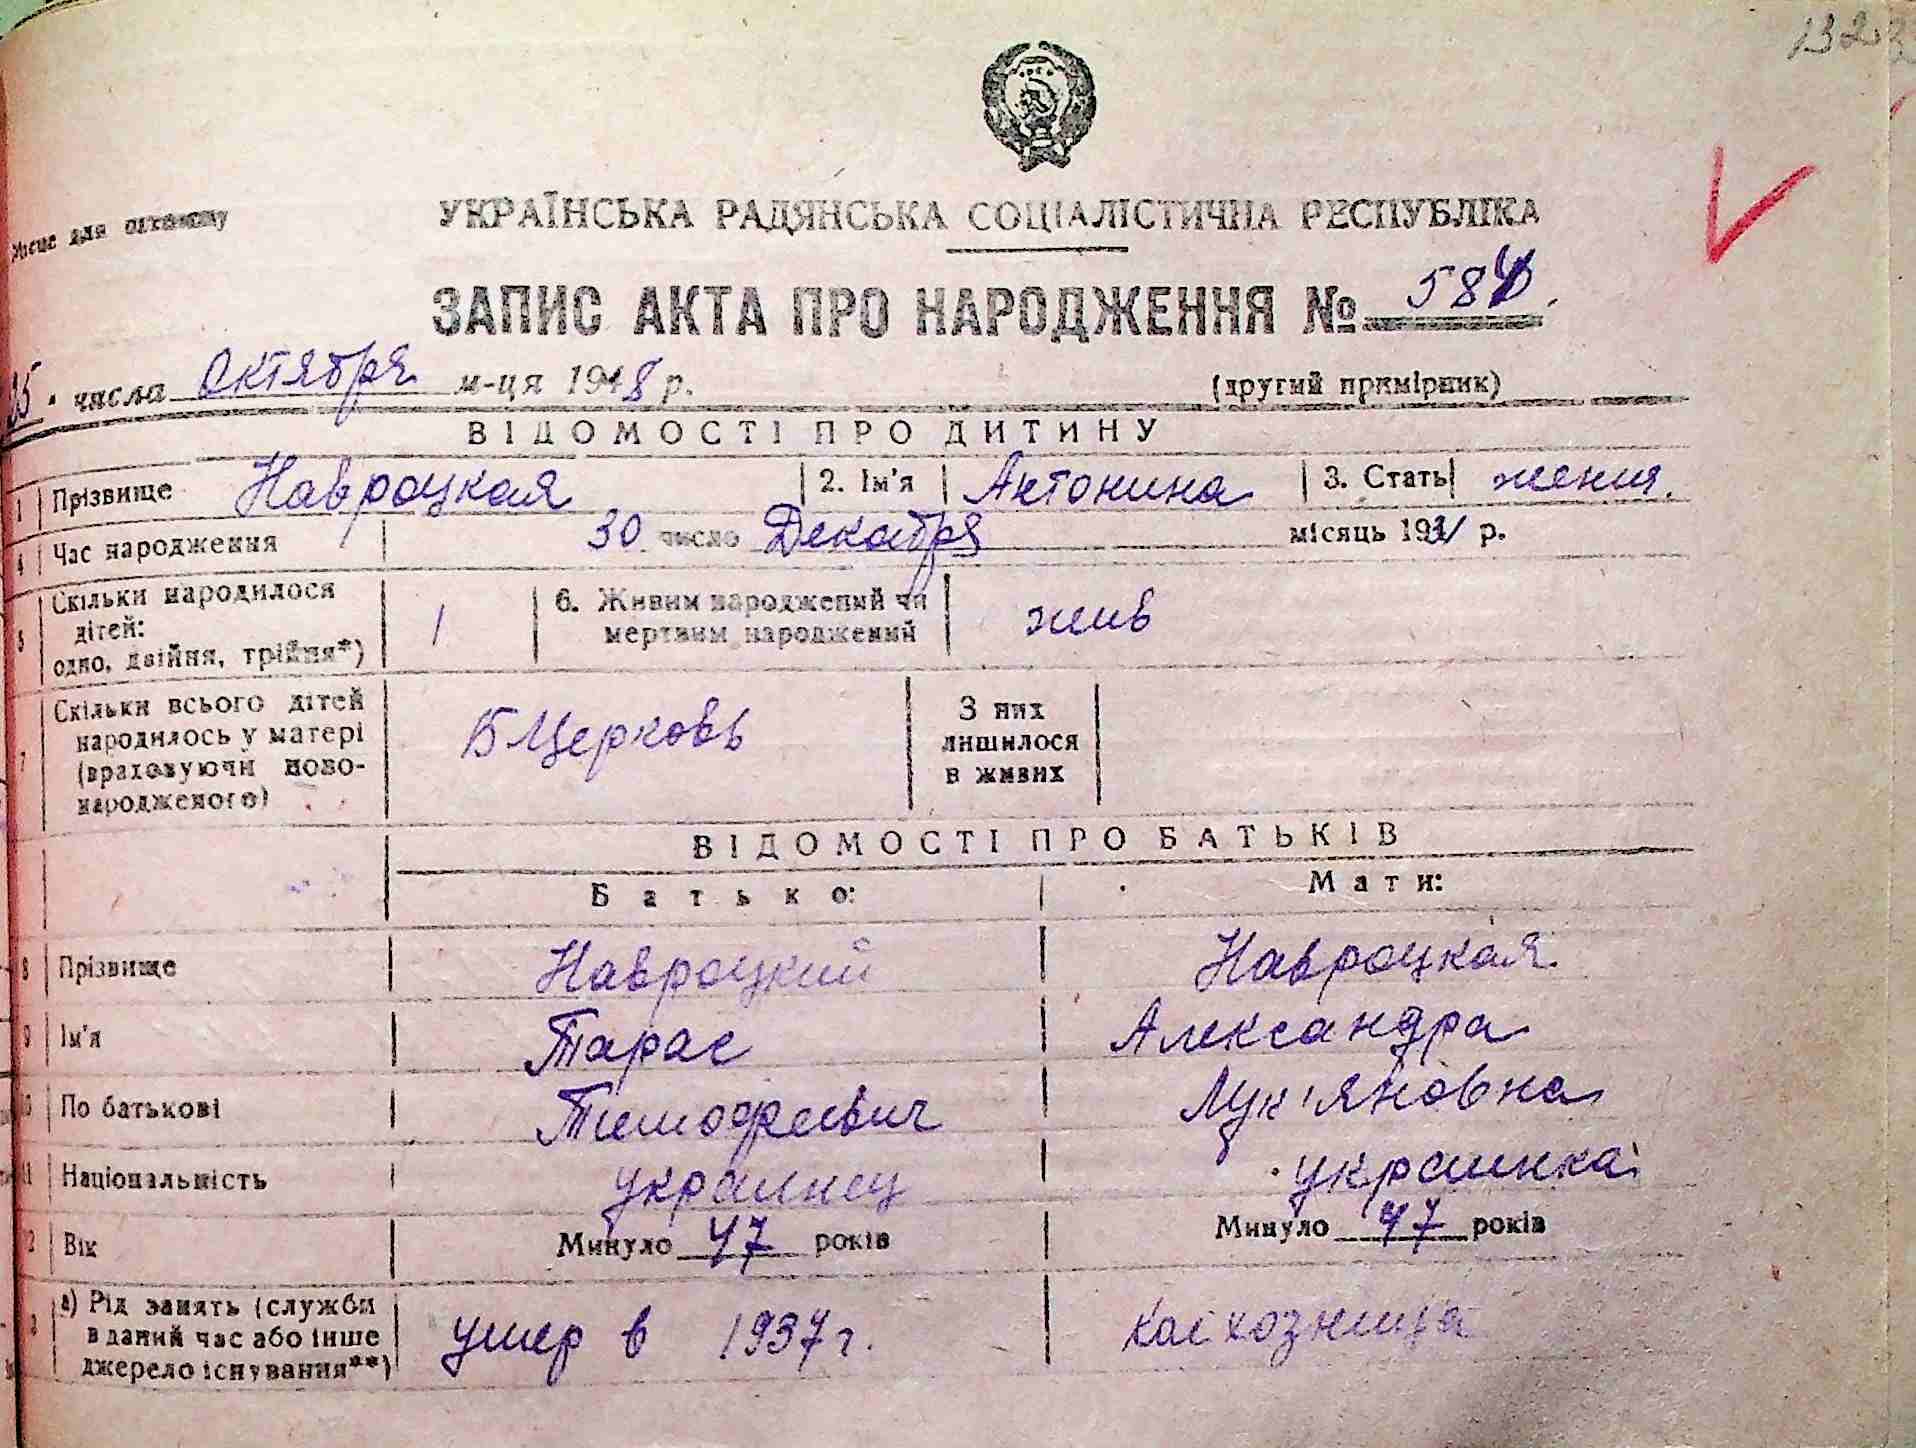 132
Місце для
УКРАЇНСЬКА РАДЯНСЬКА СОЦІАЛІСТИЧНА РЕСПУБЛІКА
ЗАПИС АКТА ПРО НАРОДЖЕННЯ № 584
числа Октября м-ця 1948 р. (другий примірник)
ВІДОМОСТІ ПРО ДИТИНУ
1 Прізвище Навроцкая 2. Ім'я Антонина 3. Стать женск.
4 Час народження 30 число Декабря місяць 1931 р.
5 Скільки народилося
дітей:
одно, двійня, трійня*) 1 6. Живим народжений чи
мертвим народжений жив
7 Скільки всього дітей
народилось у матері
(враховуючи ново-
народженого) Б Церковь З них
лишилося
в живих
ВІДОМОСТІ ПРО БАТЬКІВ
Батько: Мати:
8 Прізвище Навроцкий Навроцкая
9 Ім'я Тарас Александра
10 По батькові Тимофеевич Лук'яновна
11 Національність украинец украинка
2 Вік Минуло 47 років Минуло 47 років
а) Рід занять (служби
в даний час або інше
джерело існування**) умер в 1937 г. колхозница